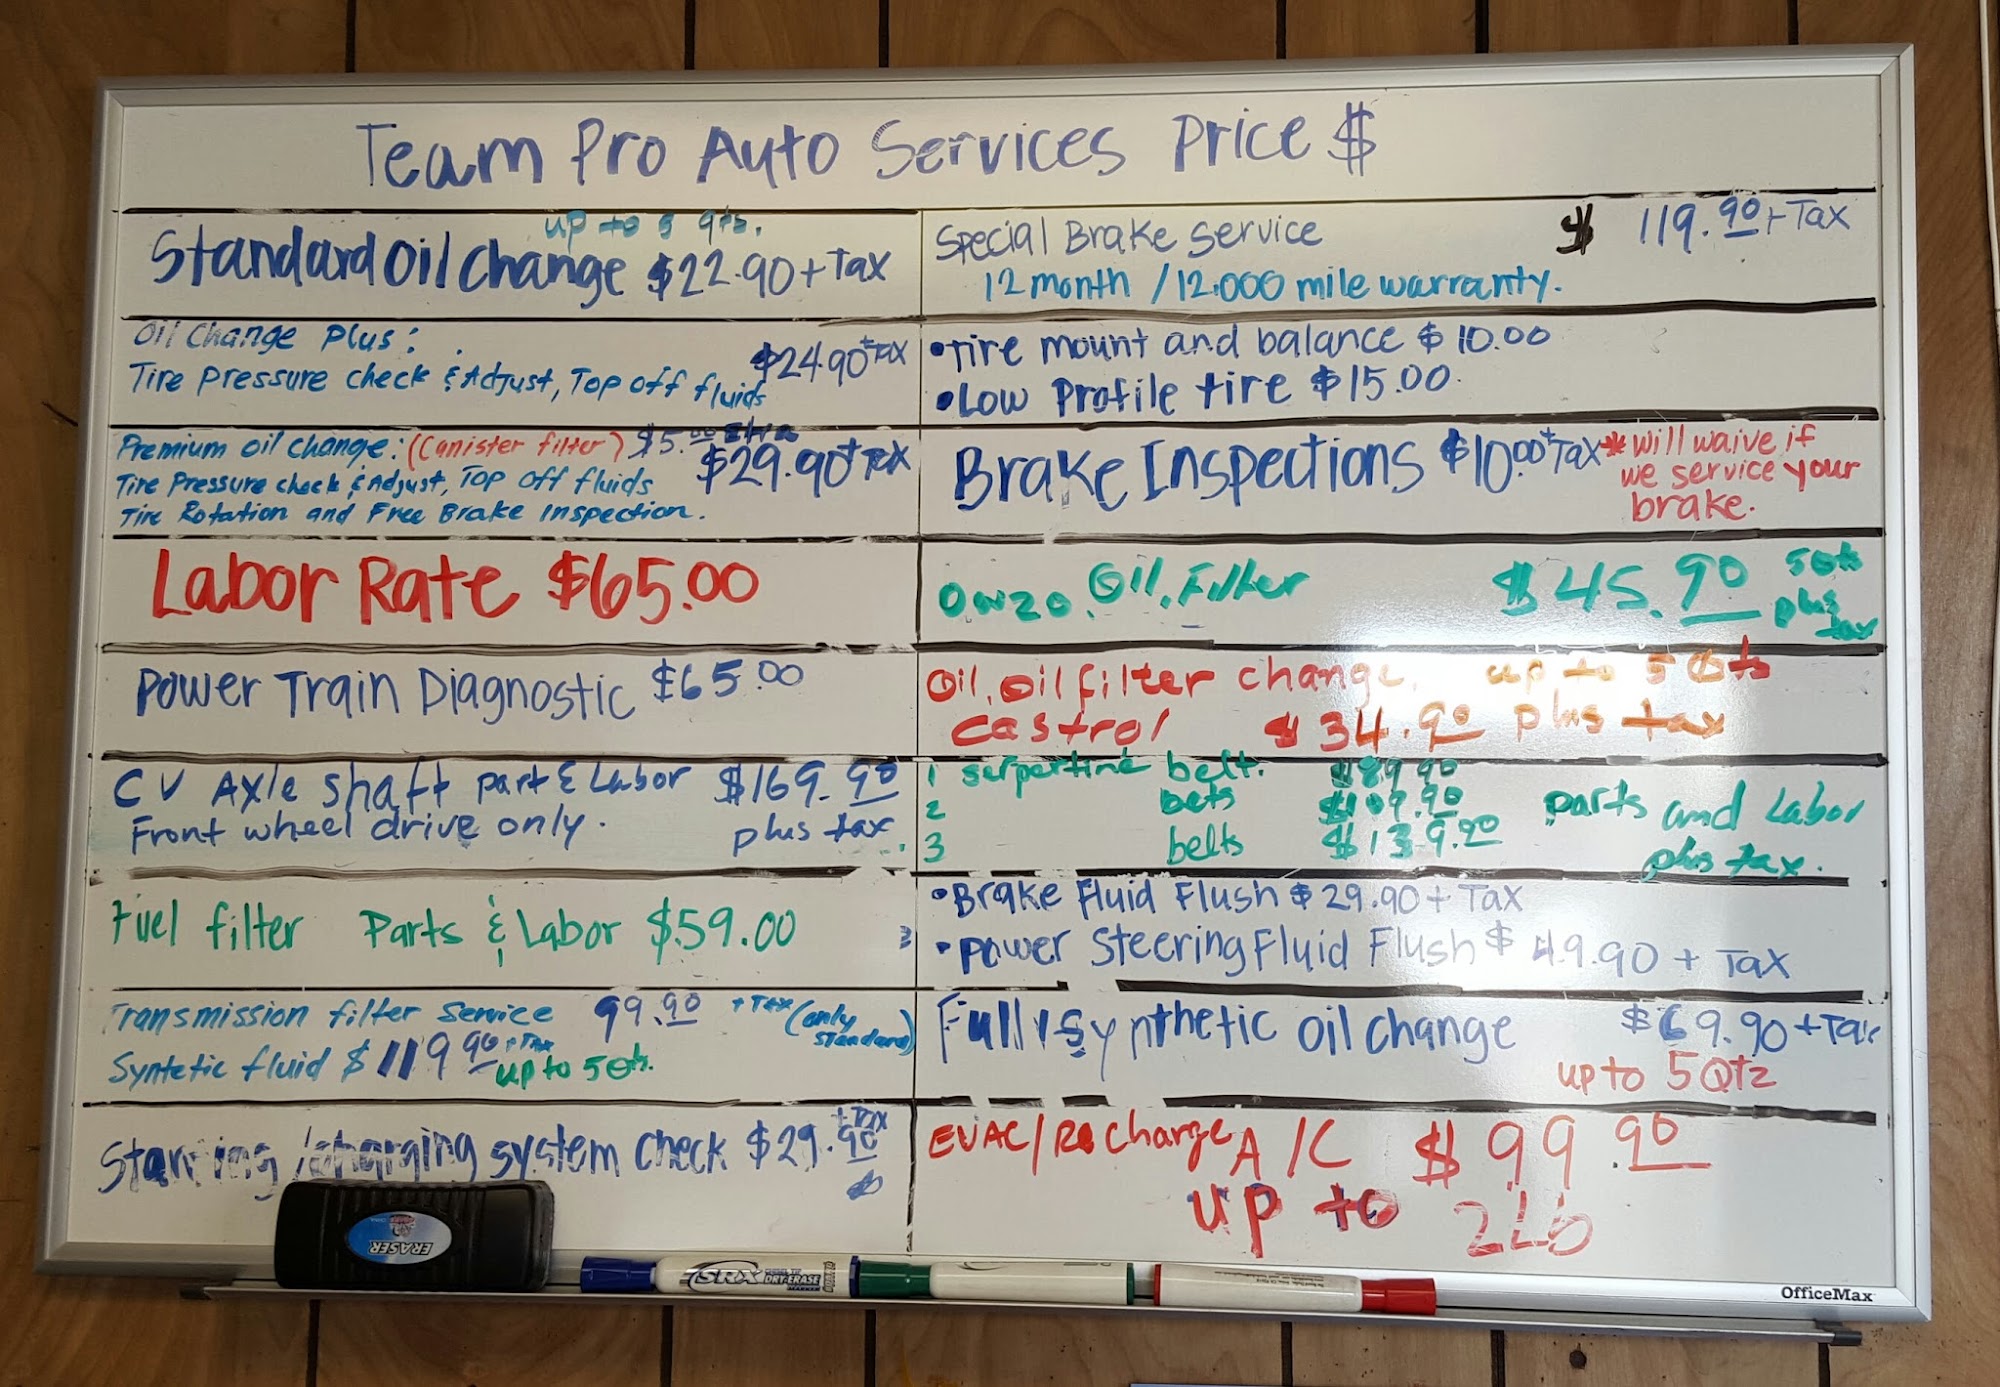 Team Pro Auto Services Price $
up to 5 qts.
Standard Oil Change $22.90 + Tax
Oil Change Plus:
$24.90 + Tax
Tire Pressure check & Adjust, Top off fluids
Premium Oil Change: (Canister filter) $5.00 Extra
$29.90 + Tax
Tire Pressure check & Adjust, Top off fluids
Tire Rotation and Free Brake Inspection.
Labor Rate $65.00
Power Train Diagnostic $65.00
CV Axle shaft part & Labor $169.90
Front wheel drive only. plus tax.
Fuel filter Parts & Labor $59.00
Transmission filter Service 99.90 + Tax (only standard)
Syntetic fluid $119.90 + Tax up to 5 Qts.
Starting / charging system check $29.90 + Tax
Special Brake Service $ 119.90 + Tax
12 month / 12.000 mile warranty.
•Tire mount and balance $10.00
•Low Profile tire $15.00
Brake Inspections $10.00 + Tax * will waive if
we service your
brake.
0w20. Oil. Filter $45.90 5 Qts
plus
tax
Oil, oil filter change. up to 5 Qts
castrol $34.90 plus tax
1 serpertine belt. $89.90
2 bets $109.90 parts and Labor
3 belts $139.90 plus tax.
•Brake Fluid Flush $29.90 + Tax
•Power Steering Fluid Flush $49.90 + Tax
Full Synthetic oil change $69.90 + Tax
up to 5 Qtz
EVAC/Recharge A/C $99.90
up to 2Lb
ERASER
SRX DRY-ERASE
OfficeMax